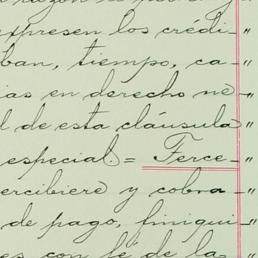 expresen los crédi-"
ban, tiempo, ca-"
ias en derecho ne-"
l de esta cláusula"
especial.= Terce-"
ercibiere y cobra-"
de pago, finiqui-"
es con fé de la-"